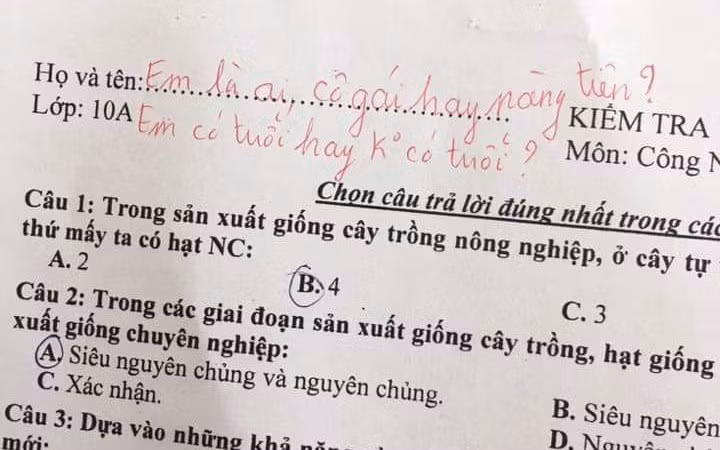 Họ và tên: Em là ai, cô gái hay nàng tiên?
KIỂM TRA
Lớp: 10A Em có tuổi hay k° có tuổi?
Môn: Công
Chọn câu trả lời đúng nhất trong các
Câu 1: Trong sản xuất giống cây trồng nông nghiệp, ở cây tự
thứ mấy ta có hạt NC:
A. 2
B. 4
C. 3
Câu 2: Trong các giai đoạn sản xuất giống cây trồng, hạt giống
xuất giống chuyên nghiệp:
A. Siêu nguyên chủng và nguyên chủng.
B. Siêu nguyên
C. Xác nhận.
D.
Câu 3: Dựa vào những khả
mới: